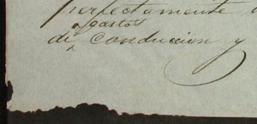 perfectamente
gastos
de conduccion y